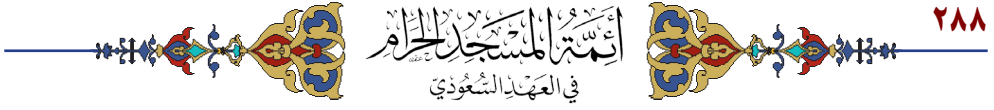 ٢٨٨
أَئِمَّةُ المَسْجِدِ الحَرَامِ
في العَهْدِ السُّعُوديّ